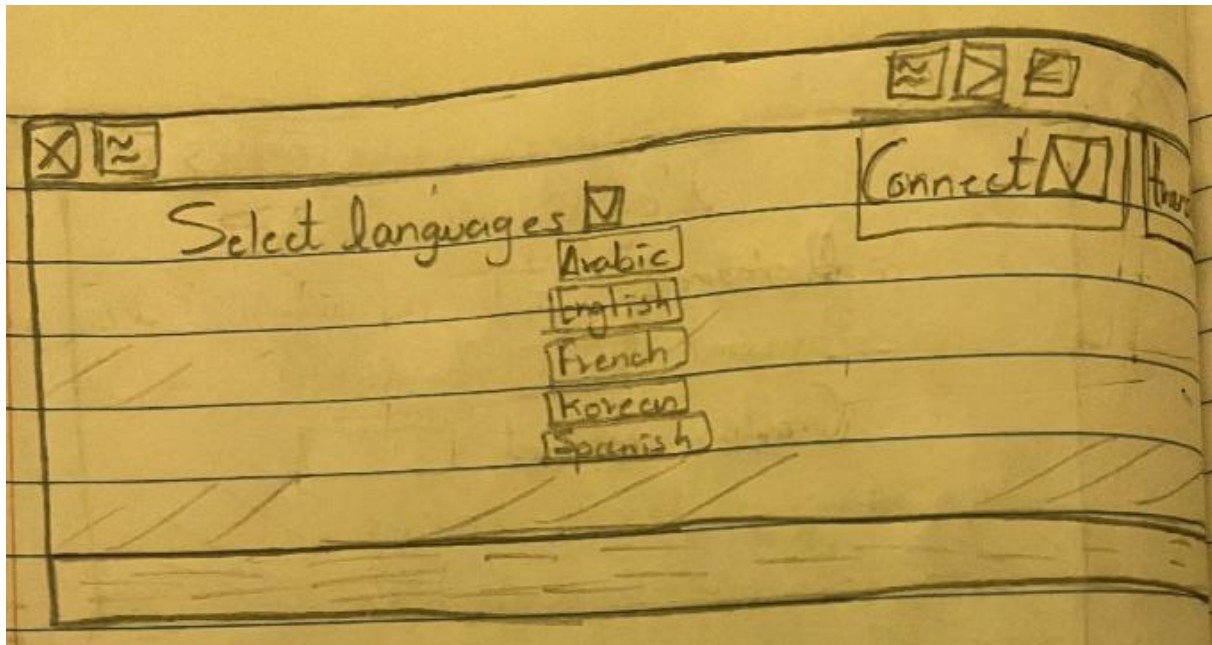 Connect
Select languages
Arabic
English
French
Korean
Spanish